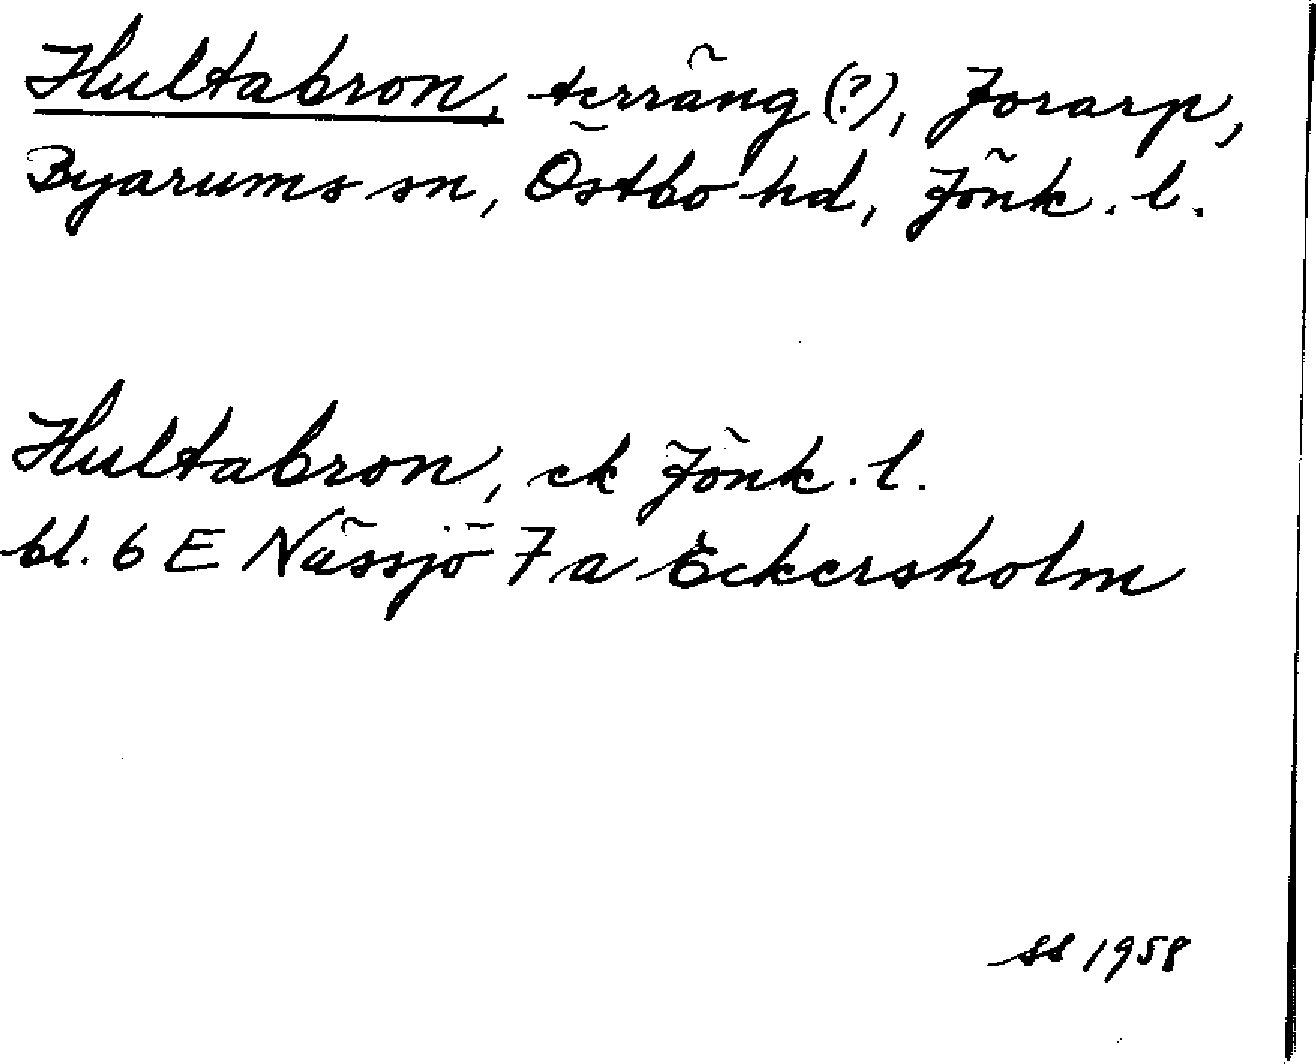 Hultabron, terräng (?), Jorarp,
Byarums sn, Östbo hd, Jönk. l.
Hultabron, ek Jönk. l.
bl. 6 E Nässjö 7 a Eckersholm
ss 1958